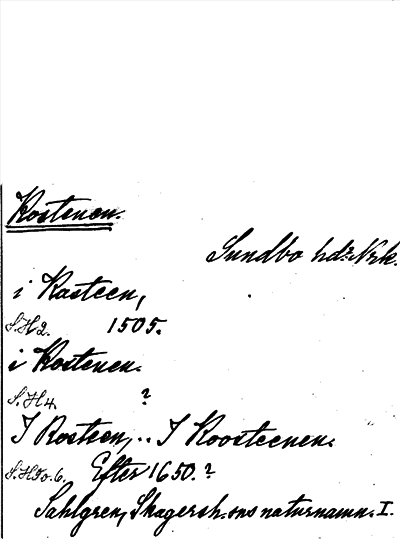 Kostenen.
Sundbo hdr. Nrk.
i Kasteen,
S.H 2. 1505.
i Kostenen.
S. H 4. ?
I Rosteen, .. I Koosteenen.
Efter 1650. ?
Sahlgren, Skagersh.ons naturnamn. I.